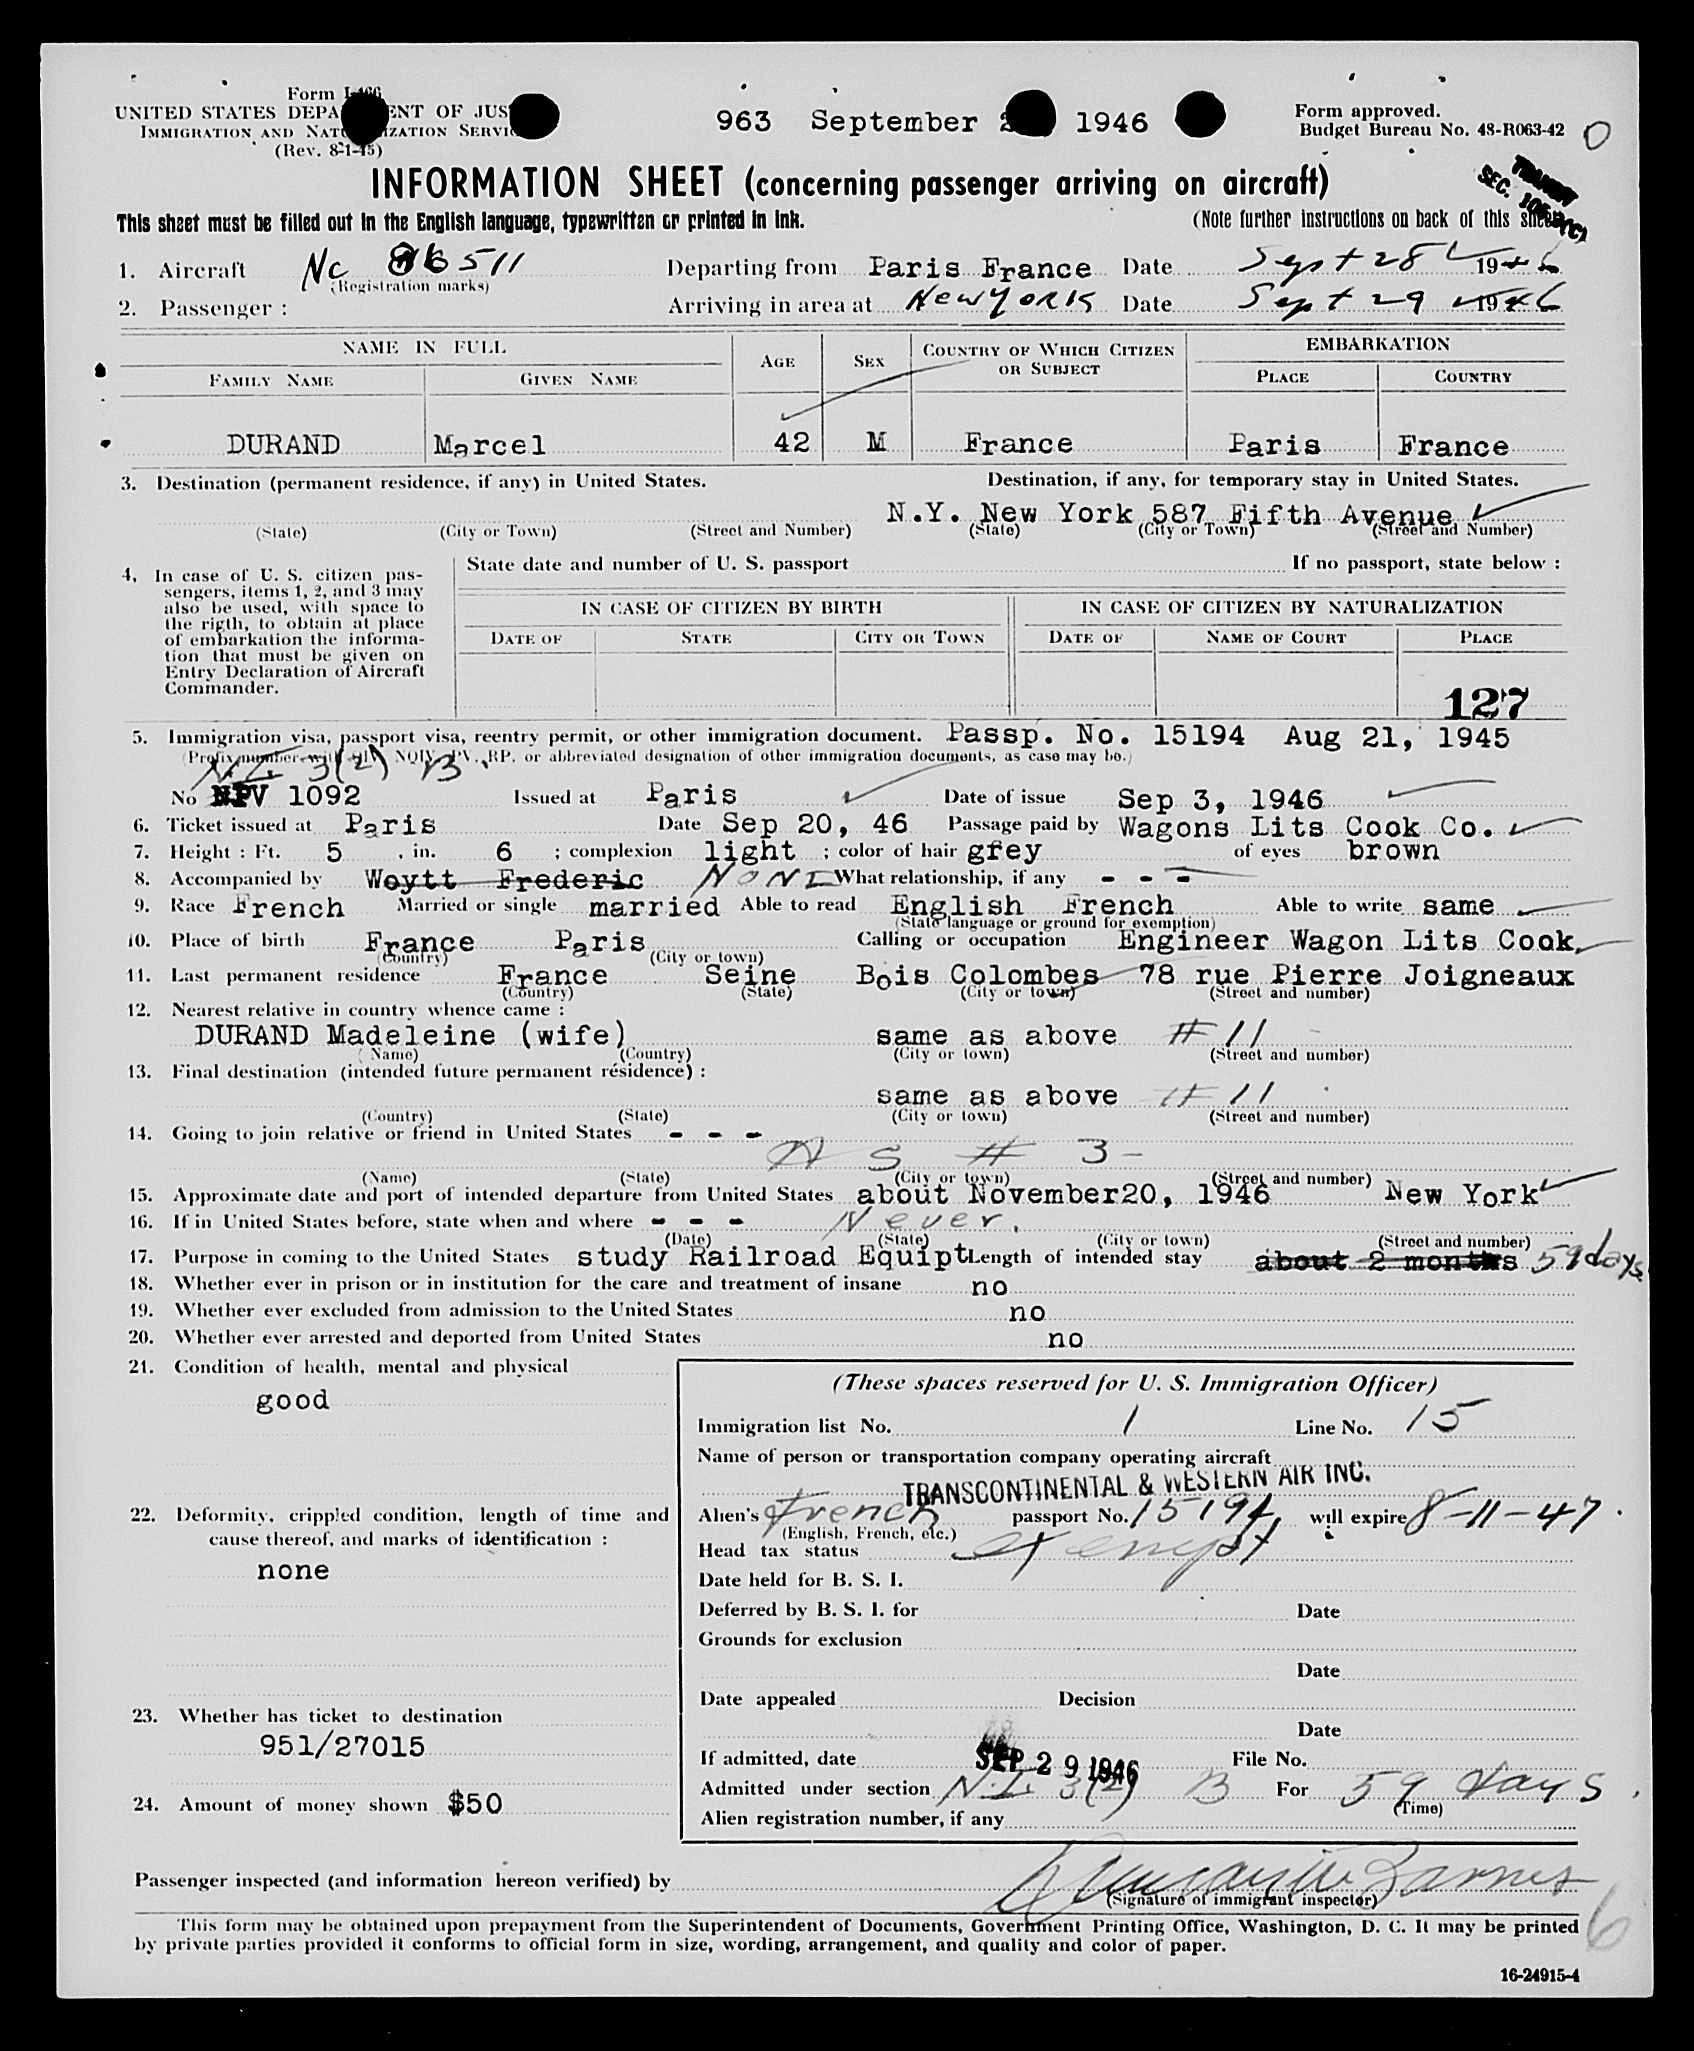 Form I-466
UNITED STATES DEPA ENT OF JUS
IMMIGRATION AND NATU IZATION SERVIC
(Rev. 8-1-45)
963 September 1946
Form approved.
Budget Bureau No. 43-R063-42
INFORMATION SHEET (concerning passenger arriving on aircraft)
TRANSIT
SEC.
This sheet must be filled out in the English language, typewritten or printed in ink.
(Note further instructions on back of this sheet)
1. Aircraft Nc 86511 Departing from Paris France Date Sept 28 1946
(Registration marks)
2. Passenger : Arriving in area at New York Date Sept 29 1946
NAME IN FULL
AGE SEX COUNTRY OF WHICH CITIZEN OR SUBJECT EMBARKATION
FAMILY NAME GIVEN NAME PLACE COUNTRY
DURAND Marcel 42 M France Paris France
3. Destination (permanent residence, if any) in United States. Destination, if any, for temporary stay in United States.
N.Y. New York 587 Fifth Avenue
(State) (City or Town) (Street and Number) (State) (City or Town) (Street and Number)
4. In case of U. S. citizen pas-
sengers, items 1, 2, and 3 may
also be used, with space to
the rigth, to obtain at place
of embarkation the informa-
tion that must be given on
Entry Declaration of Aircraft
Commander.
State date and number of U. S. passport If no passport, state below :
IN CASE OF CITIZEN BY BIRTH IN CASE OF CITIZEN BY NATURALIZATION
DATE OF STATE CITY OR TOWN DATE OF NAME OF COURT PLACE
127
5. Immigration visa, passport visa, reentry permit, or other immigration document. Passp. No. 15194 Aug 21, 1945
(Prefix number with QIV, NQIV, PV, RP, or abbreviated designation of other immigration documents, as case may be.)
N.I. 3(2) B
No NPV 1092 Issued at Paris Date of issue Sep 3, 1946
6. Ticket issued at Paris Date Sep 20, 46 Passage paid by Wagons Lits Cook Co.
7. Height : Ft. 5 , in. 6 ; complexion light ; color of hair grey of eyes brown
8. Accompanied by Woytt Frederic NONE What relationship, if any - - -
9. Race French Married or single married Able to read English French Able to write same
(State language or ground for exemption)
10. Place of birth France Paris Calling or occupation Engineer Wagon Lits Cook.
(Country) (City or town)
11. Last permanent residence France Seine Bois Colombes 78 rue Pierre Joigneaux
(Country) (State) (City or town) (Street and number)
12. Nearest relative in country whence came :
DURAND Madeleine (wife) same as above # 11
(Name) (Country) (City or town) (Street and number)
13. Final destination (intended future permanent résidence) :
same as above # 11
(Country) (State) (City or town) (Street and number)
14. Going to join relative or friend in United States - - -
A S # 3 -
(Name) (State) (City or town) (Street and number)
15. Approximate date and port of intended departure from United States about November20, 1946 New York
16. If in United States before, state when and where - - - Never.
(Date) (State) (City or town) (Street and number)
17. Purpose in coming to the United States study Railroad Equipt Length of intended stay about 2 months 59 days
18. Whether ever in prison or in institution for the care and treatment of insane no
19. Whether ever excluded from admission to the United States no
20. Whether ever arrested and deported from United States no
21. Condition of health, mental and physical
good
22. Deformity, crippled condition, length of time and
cause thereof, and marks of identification :
none
23. Whether has ticket to destination
951/27015
24. Amount of money shown $50
(These spaces reserved for U. S. Immigration Officer)
Immigration list No. 1 Line No. 15
Name of person or transportation company operating aircraft
TRANSCONTINENTAL & WESTERN AIR INC.
Alien's French passport No. 15194 will expire 8-11-47.
(English, French, etc.)
Head tax status exempt
Date held for B. S. I.
Deferred by B. S. I. for Date
Grounds for exclusion
Date
Date appealed Decision
Date
If admitted, date SEP 29 1946 File No.
Admitted under section N.I. 3(2) B For 59 days.
(Time)
Alien registration number, if any
Passenger inspected (and information hereon verified) by Barnes
(Signature of immigrant inspector)
This form may be obtained upon prepayment from the Superintendent of Documents, Government Printing Office, Washington, D. C. It may be printed
by private parties provided it conforms to official form in size, wording, arrangement, and quality and color of paper.
6
16-24915-4